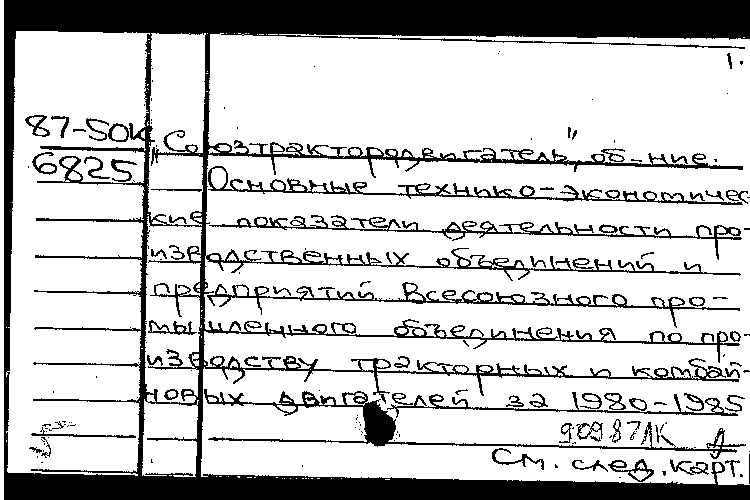 1.
87-50к
6825
"Союзтрактородвигатель", об-ние.
Основные технико-экономичес
кие показатели деятельности про-
изводственных объединений и
предприятий Всесоюзного про-
мышленного объединения по про-
изводству тракторных и комбай-
новых двигателей за 1980-1985
90987ЛК
См. след. карт.